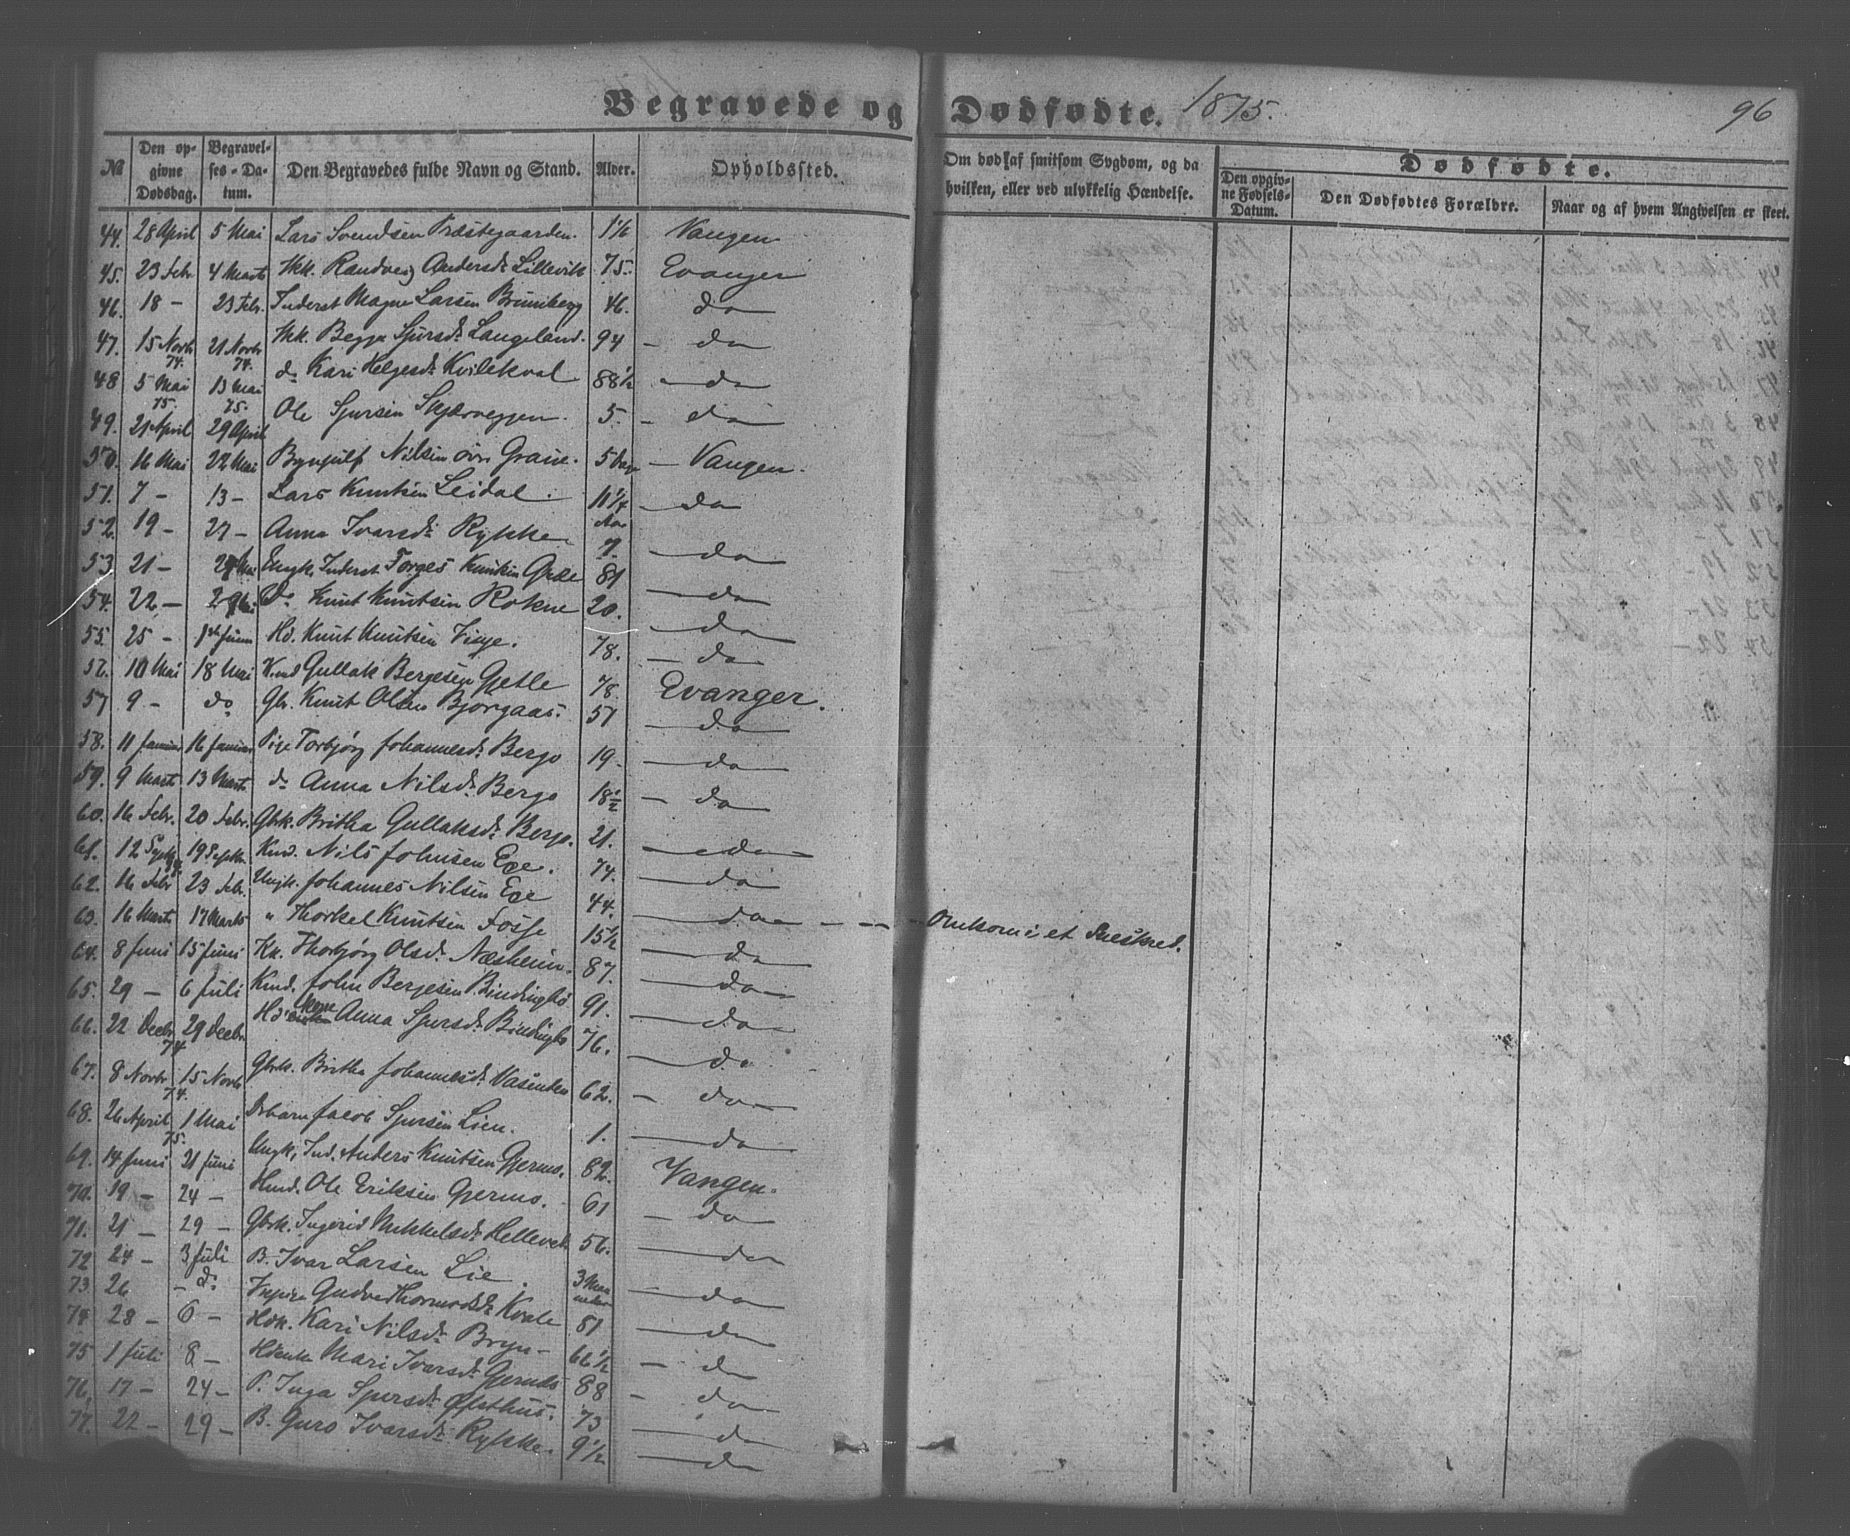 Begravede og Dødfødte. 1875. 96
№ Den opgivne Dødsdag. Begravelses-Datum. Den Begravedes fulde Navn og Stand. Alder. Opholdssted. Om død af smitsom Sygdom, og da hvilken, eller ved ulykkelig Hændelse. Dødfødte. Den opgivne Fødsels-Datum. Den Dødfødtes Forældre. Naar og af hvem Angivelsen er skeet.
44. 28 April 5 Mai Lars Svendsen Præstegaarden. 1 1/6 Vangen
45. 23 Febr 4 Marts Kk. Randveig Andersdr Lillevik 75. Evanger
46. 18 - 23 Febr. Inderst Magne Larsen Bruniberg 46. do
47. 15 Novbr 74. 21 Novbr 74. Kk. Begga Sjursdr Langeland. 94 - do
48 5 Mai 75. 13 Mai 75. do Kari Helgesdr Kvilekval 88 1/2 - do
49. 21 April 29 April Ole Sjursen Skjerveggen. 5. - do
50. 16 Mai 22 Mai Brynjulf Nilsen øvre Grane. 5 Dage - Vangen.
51. 7 - 13 - Lars Knutsen Leidal. 11 1/4 Aar - do
52. 19 - 27 - Anna Ivarsdr Rykke 7. - do
53 21 - 29 Mai Ungk. Inderst Torges Knutsen Gjelle 81 - do
54. 22 - 29 Mai do Knut Knutsen Rokne 20. - do
55. 25 - 1ste Juni Hd. Knut Knutsen Vinje. 78. - do
56. 10 Mai 18 Mai Kmd Gullak Bergesen Gjetle 78. Evanger.
57 9 - do Gbr. Knut Olsen Bjørgaas. 57 - do
58. 11 Januar 16 Januar Pige Torbjørg Johannesdr Bergo 19 - do
59. 9 Marts 13 Marts do Anna Nilsdr Bergo 18 1/2 - do
60. 16 Febr. 20 Febr. Gbrk. Britha Gullaksdr Bergo. 21. - do -
61. 12 Septbr 74 19 Septbr. Kmd. Nils Johnsen Exe. 74. - do
62. 16 Febr 23 Febr. Ungk. Johannes Nilsen Exe 44. - do - - - - Omkom i et Sneskred.
63. 16 Marts 17 Marts " Thorkel Knutsen Fosse 15 1/2 - do
64. 8 Juni 15 Juni Kk. Thorbjørg Olsdr Næsheim. 87. - do
65. 29 - 6 Juli Kmd. John Bergesen Bindingbø 91. - do
66. 22 Decbr 74 29 Decbr. Hd kone Anna Sjursdr Bindingbø 76. - do
67. 8 Novbr 74. 15 Novbr Gbrk. Britha Johannesdr Vasenden 62. - do
68. 26 April 75. 1 Mai Dsbarn Jacob Sjursen Lien. 1. - do
69. 14 Juni 21 Juni Ungk. Ind. Anders Knutsen Gjerme. 82. Vangen.
70. 19 - 24 - Hmd. Ole Eriksen Gjerme. 61 - do
71. 21 - 29 - Gbrk. Ingerid Mikkelsdr Hellevek 56. - do
72 24 - 3 Juli B. Ivar Larsen Lie. 3 Maaneder - do
73 26 - do Gudve Thormodsdr Kvale 81 - do
74 28 - 6 - Hdk. Kari Nilsdr Bryn - 66 1/2 - do
75 1 Juli 8 - Hdenke Mari Ivarsdr Gjernes 88 - do
76. 17 - 24 - P. Inga Sjursdr Øfsthus. 73 - do
77. 22 - 29 - B. Guro Ivarsdr Rykke. 9 1/2 - do